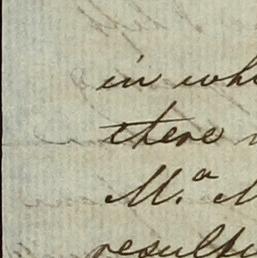 in whi
there
M.ª M
resulti